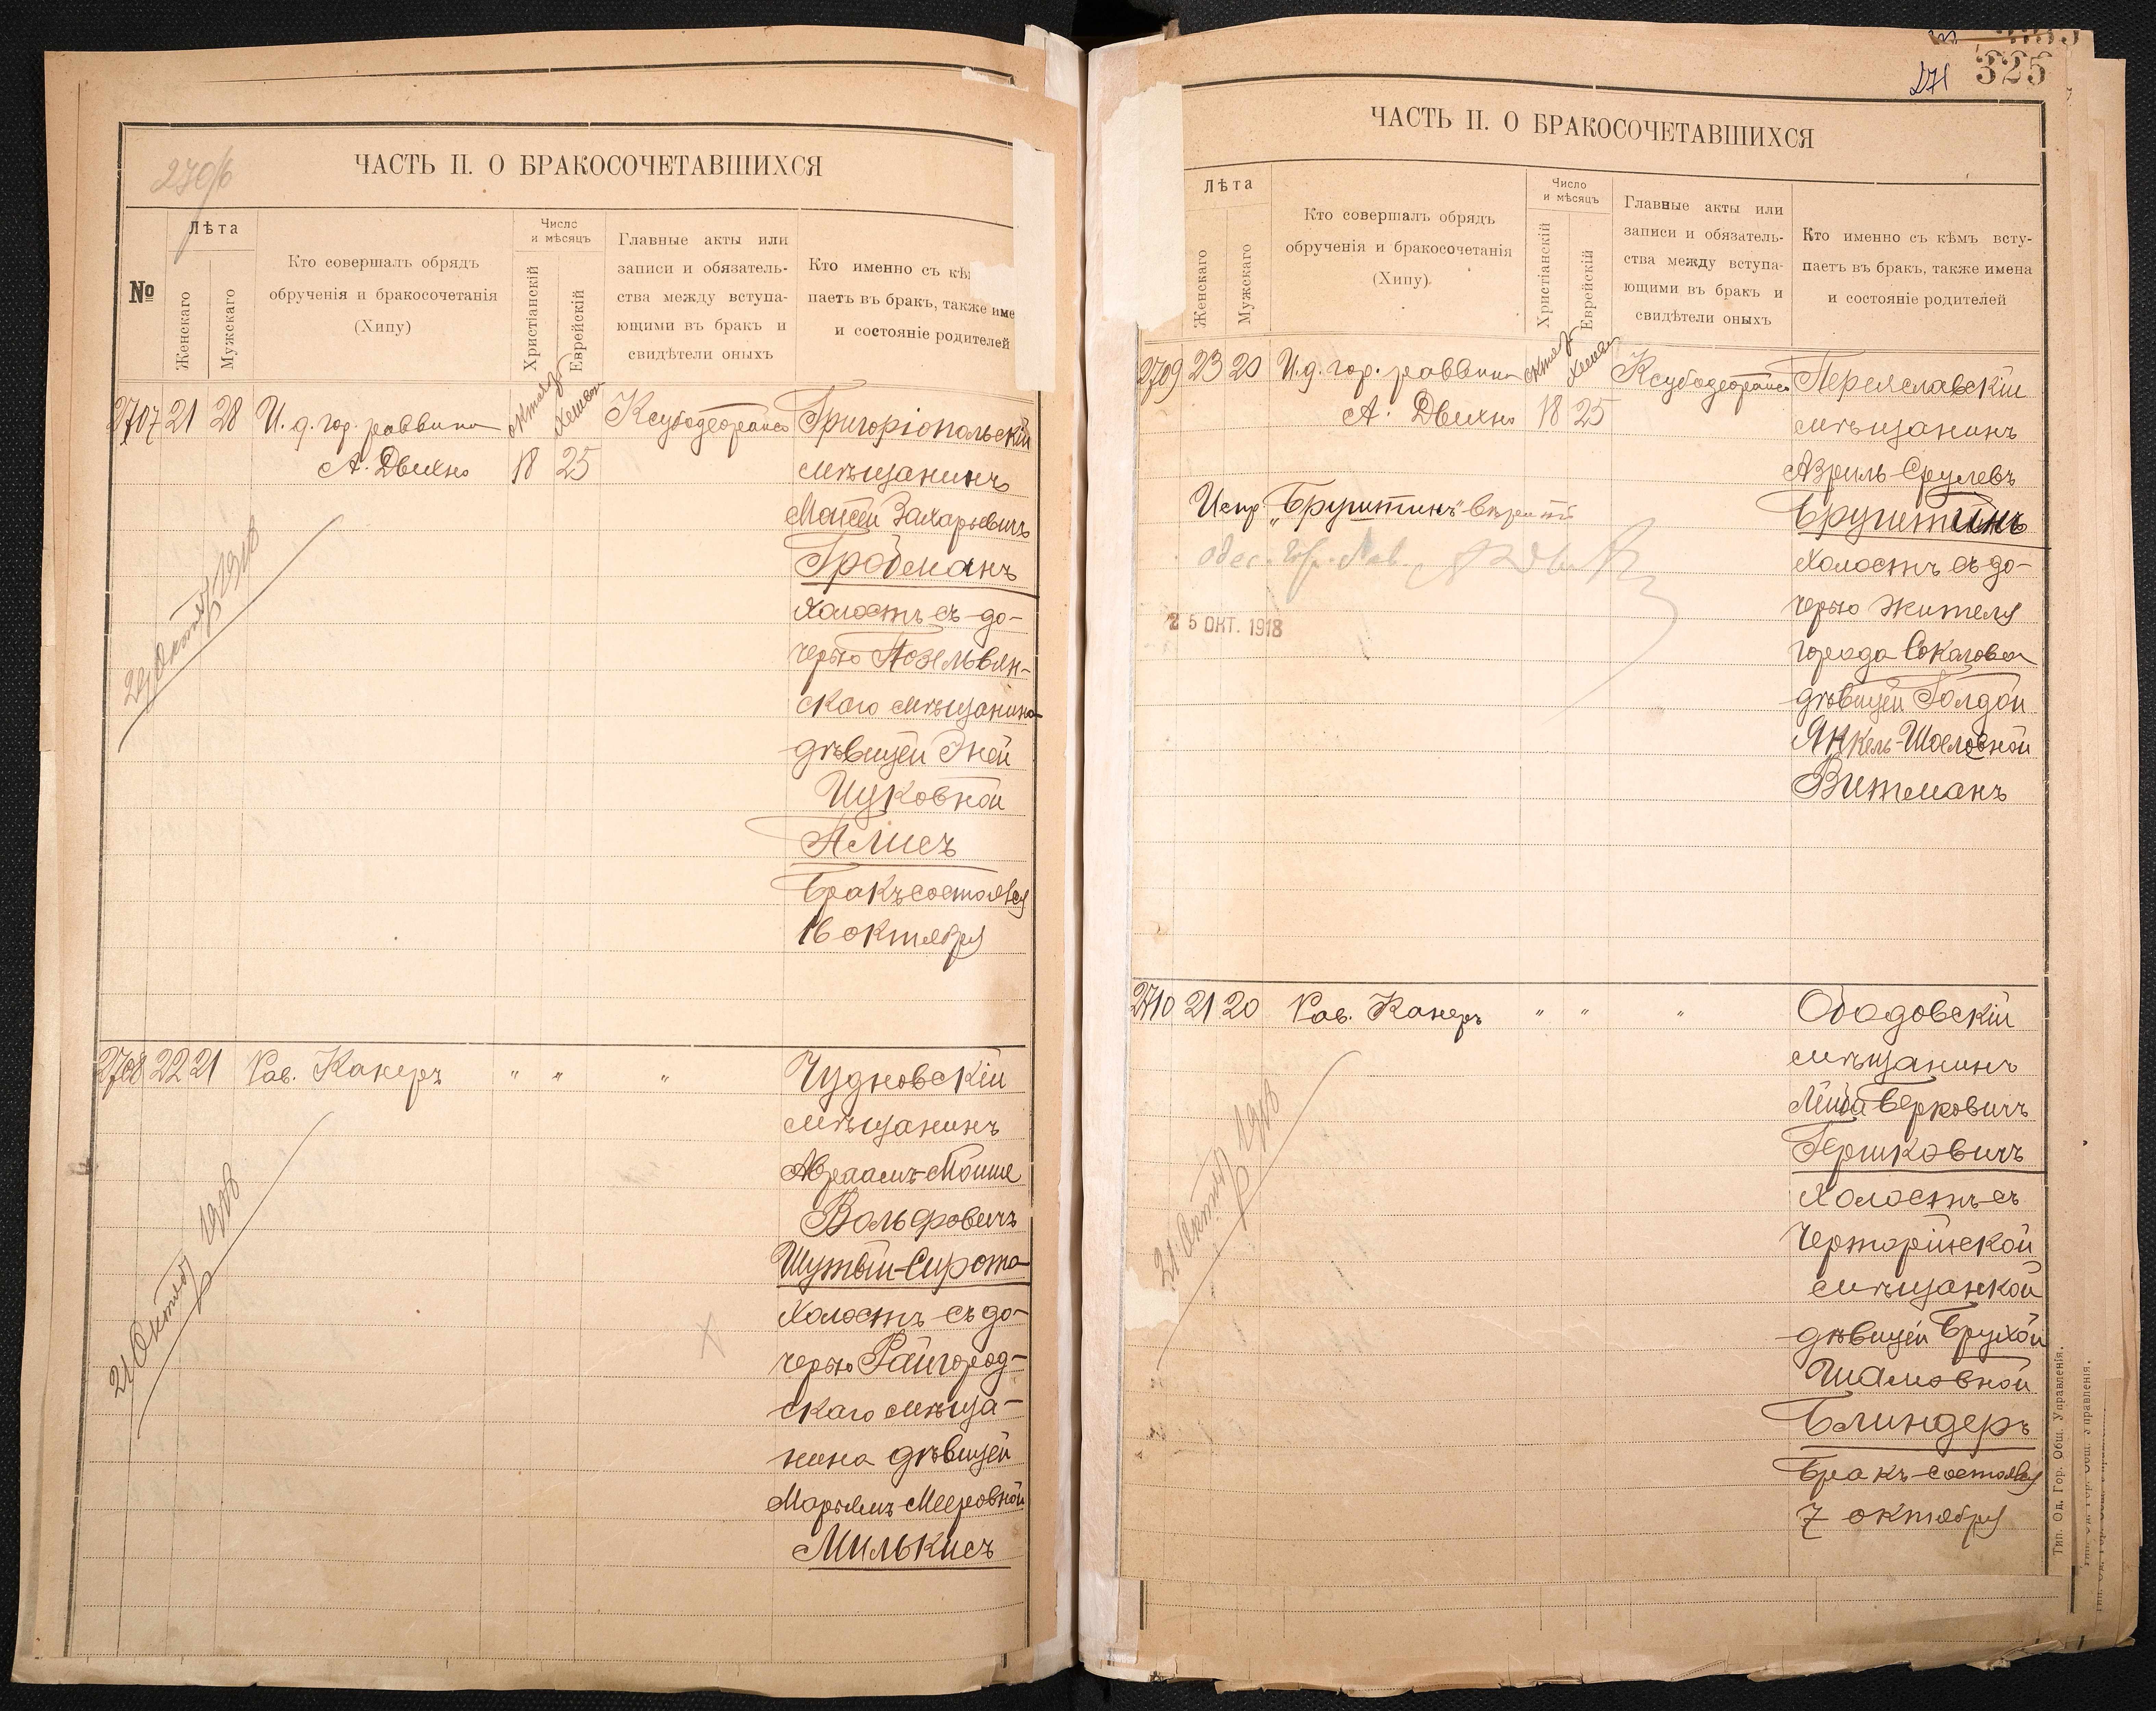 270/б
ЧАСТЬ II. О БРАКОСОЧЕТАВШИХСЯ
№
Лѣта
Женскаго
Мужскаго
Кто совершалъ обрядъ
обрученія и бракосочетанія
(Хипу)
Число
и мѣсяцъ
Христіанскій
Еврейскій
Главные акты или
записи и обязатель-
ства между вступа-
ющими въ бракъ и
свидѣтели оныхъ
Кто именно съ кѣ
паетъ въ бракъ, также име
и состояніе родителей
2707 21 28 И. д. гор. раввина
А. Двихно
октяб. 18
Хешван 25
Григоріопольскій
мѣщанинъ
Моисей Захарьевичъ
Гройсманъ
холостъ съ до-
черью
скаго мѣщанина
дѣвицей Эней
Ицковной
Бракъ состоялся
16 октября
21 Октяб 1918
2708 22 21 Рав. Канеръ " " "
Чудновскій
мѣщанинъ
Авраамъ-Мойше
Вольфовичъ
Шутый-Сирота
холостъ съ до-
черью Райгород-
скаго мѣща-
нина дѣвицей
Марьямъ Мееровной
Милькисъ
21 Октяб 1918
271
325
ЧАСТЬ II. О БРАКОСОЧЕТАВШИХСЯ
Лѣта
Женскаго
Мужскаго
Кто совершалъ обрядъ
обрученія и бракосочетанія
(Хипу)
Число
и мѣсяцъ
Христіанскій
Еврейскій
Главные акты или
записи и обязатель-
ства между вступа-
ющими въ бракъ и
свидѣтели оныхъ
Кто именно съ кѣмъ всту-
паетъ въ бракъ, также имена
и состояніе родителей
2709 23 20 И. д. гор. раввина
А. Двихно
октяб. 18
Хешван 25
Переяславскій
мѣщанинъ
Азриль Срулевъ
Бруштинъ
холостъ съ до-
черью жителя
города Соколова
дѣвицей Голдой
Янкель-Шоеловной
Витманъ
Испр. „Бруштинъ“ вѣрить
одес. гор. рав.
25 ОКТ. 1918
2710 21 20 Рав. Канеръ " " "
Ободовскій
мѣщанинъ
Лейба Берковичъ
Гершковичъ
холостъ съ
Черторійской
мѣщанкой
дѣвицей Брухой
Шамовной
Блиндеръ
Бракъ состоялся
7 октября
21 Октяб 1918
Тип. Од. Гор. Общ. Управленія.